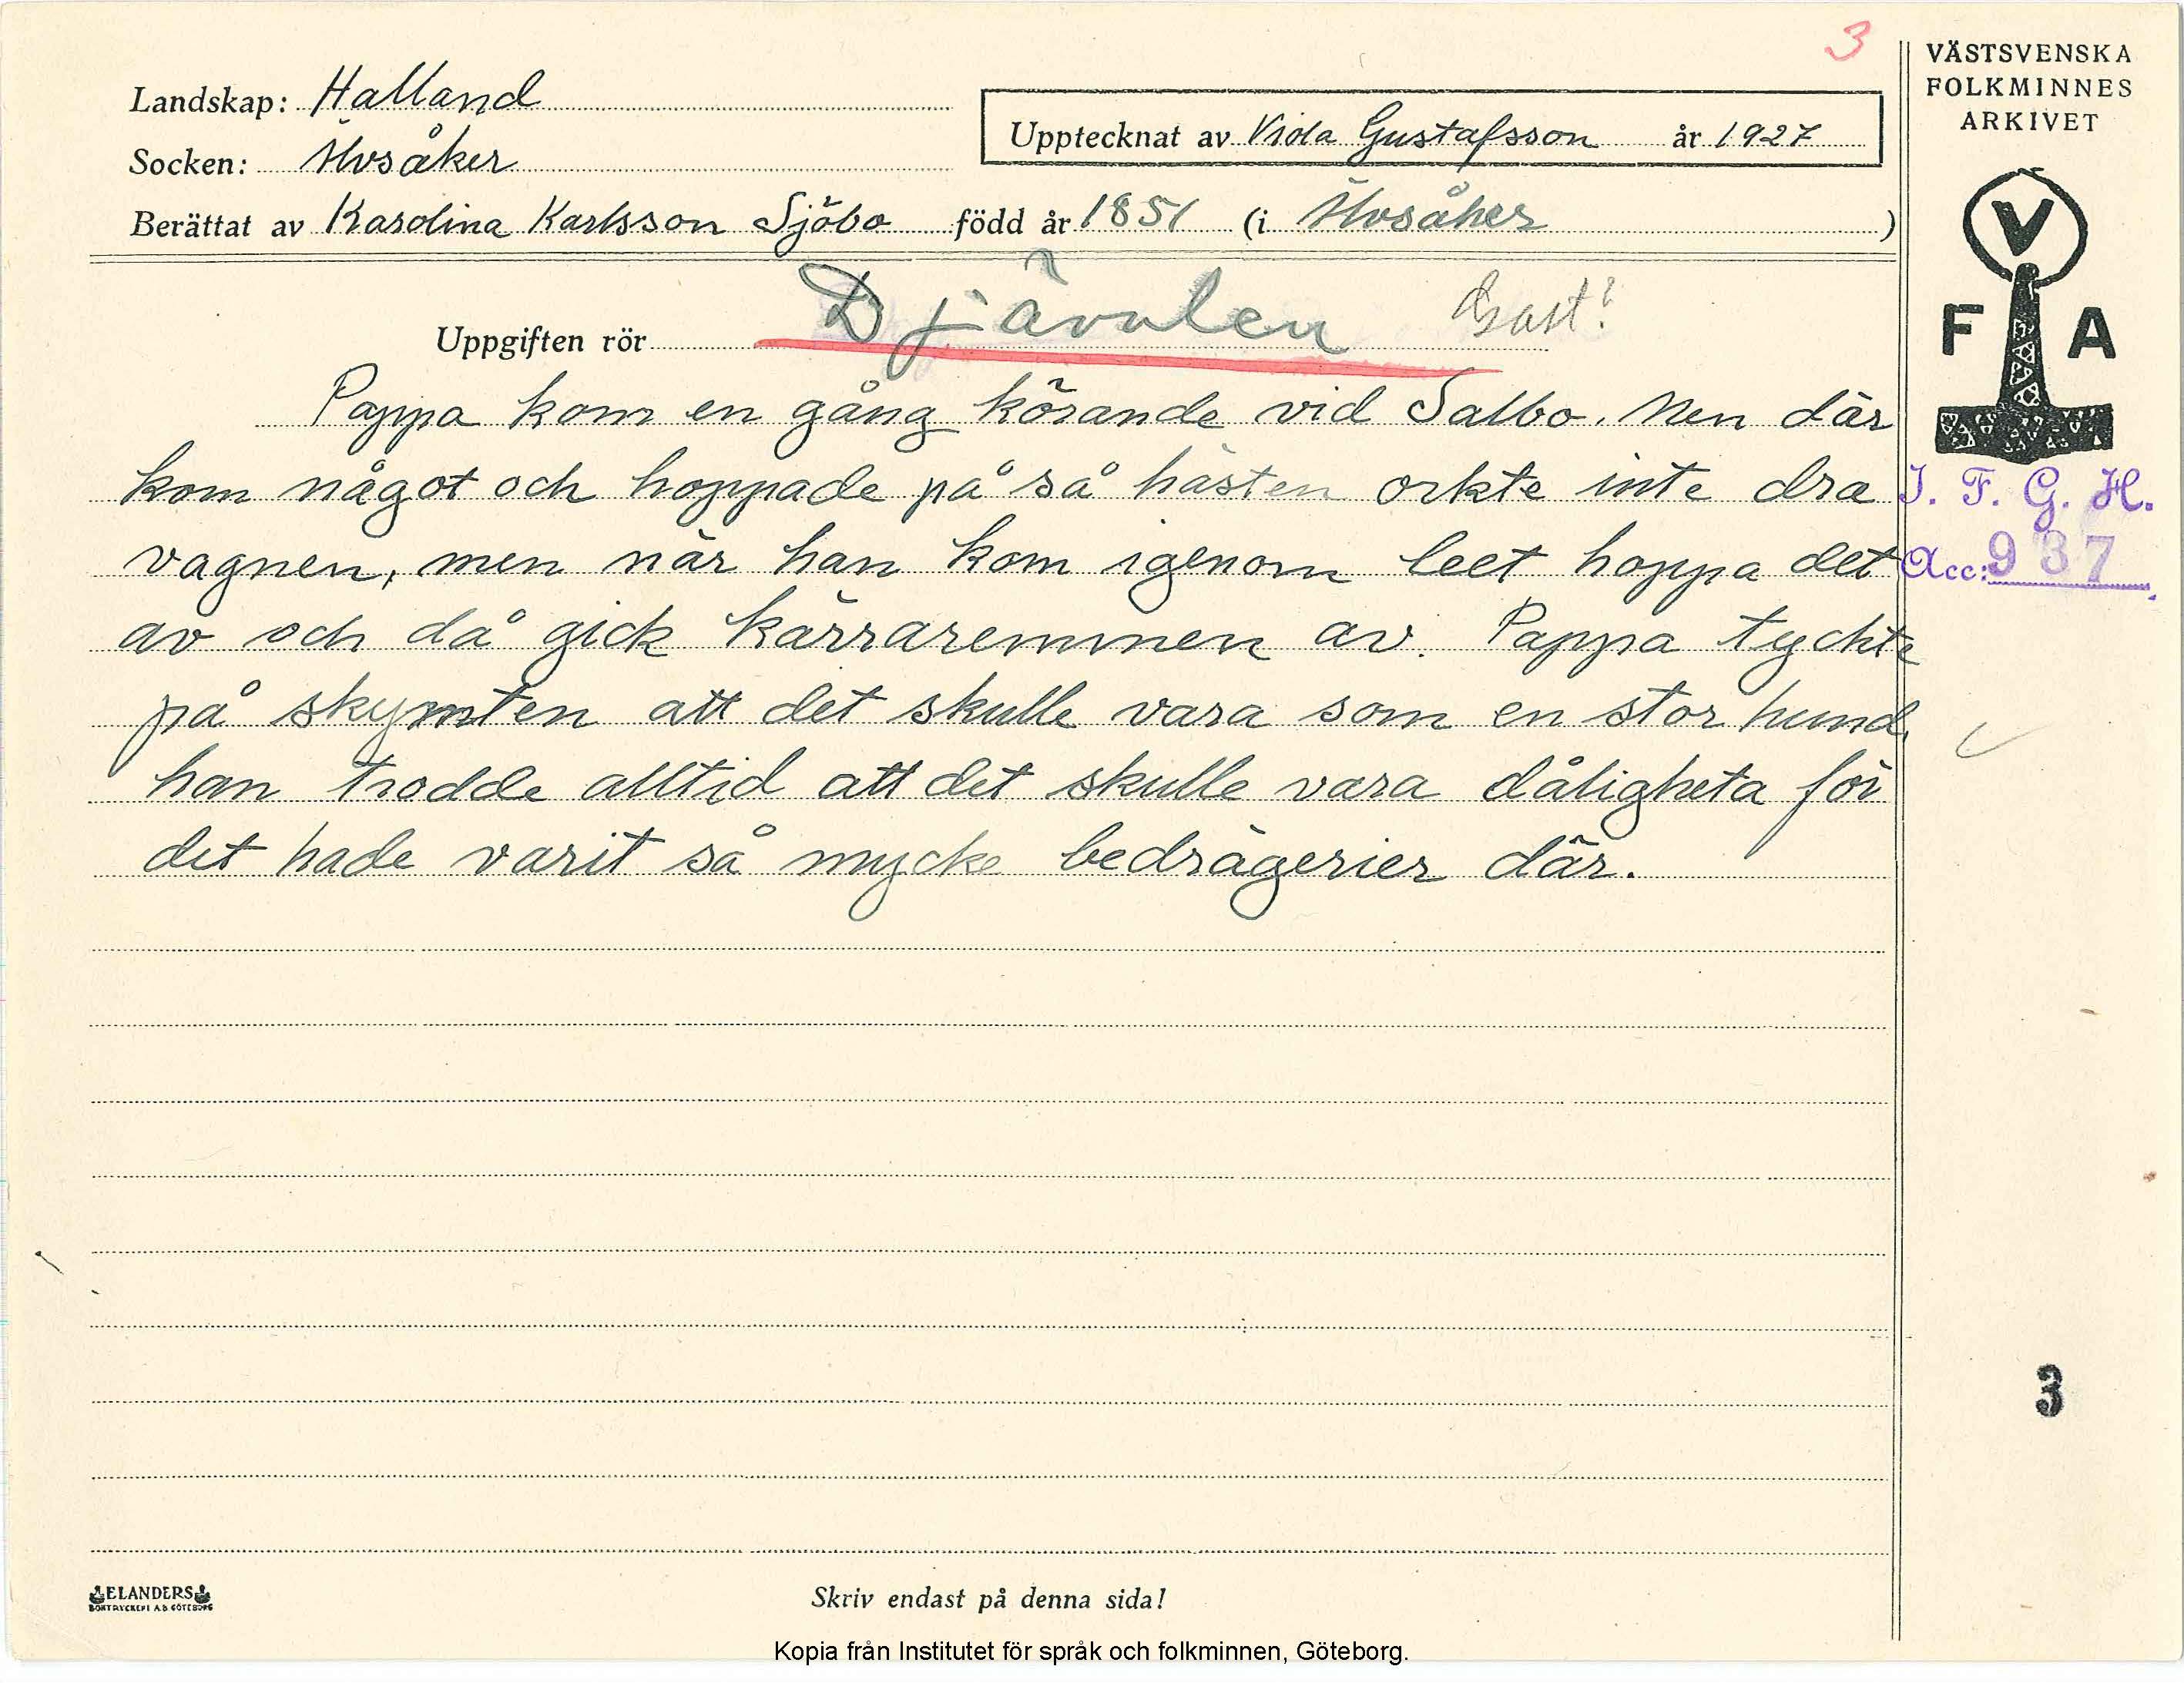 3
VÄSTSVENSKA
FOLKMINNES
ARKIVET
Landskap: Halland
Upptecknat av Viola Gustafsson år 1927
Socken: Älvsåker
Berättat av Karolina Karlsson Sjöbo född år 1851 (i Älvsåker)
V
F A
Uppgiften rör Djävulen Gast?
Pappa kom en gång körande vid Salbo. Men där
kom något och hoppade på så hästen orkte inte dra
I. F. G. H.
vagnen, men när han kom igenom leet hoppa det
Acc: 937
av och då gick kärraremmen av. Pappa tyckte
på skymten att det skulle vara som en stor hund,
han trodde alltid att det skulle vara dåligheta för
det hade varit så mycke bedrägerier där.
3
ELANDERS
BOKTRYCKERI A.B. GÖTEBORG
Skriv endast på denna sida!
Kopia från Institutet för språk och folkminnen, Göteborg.